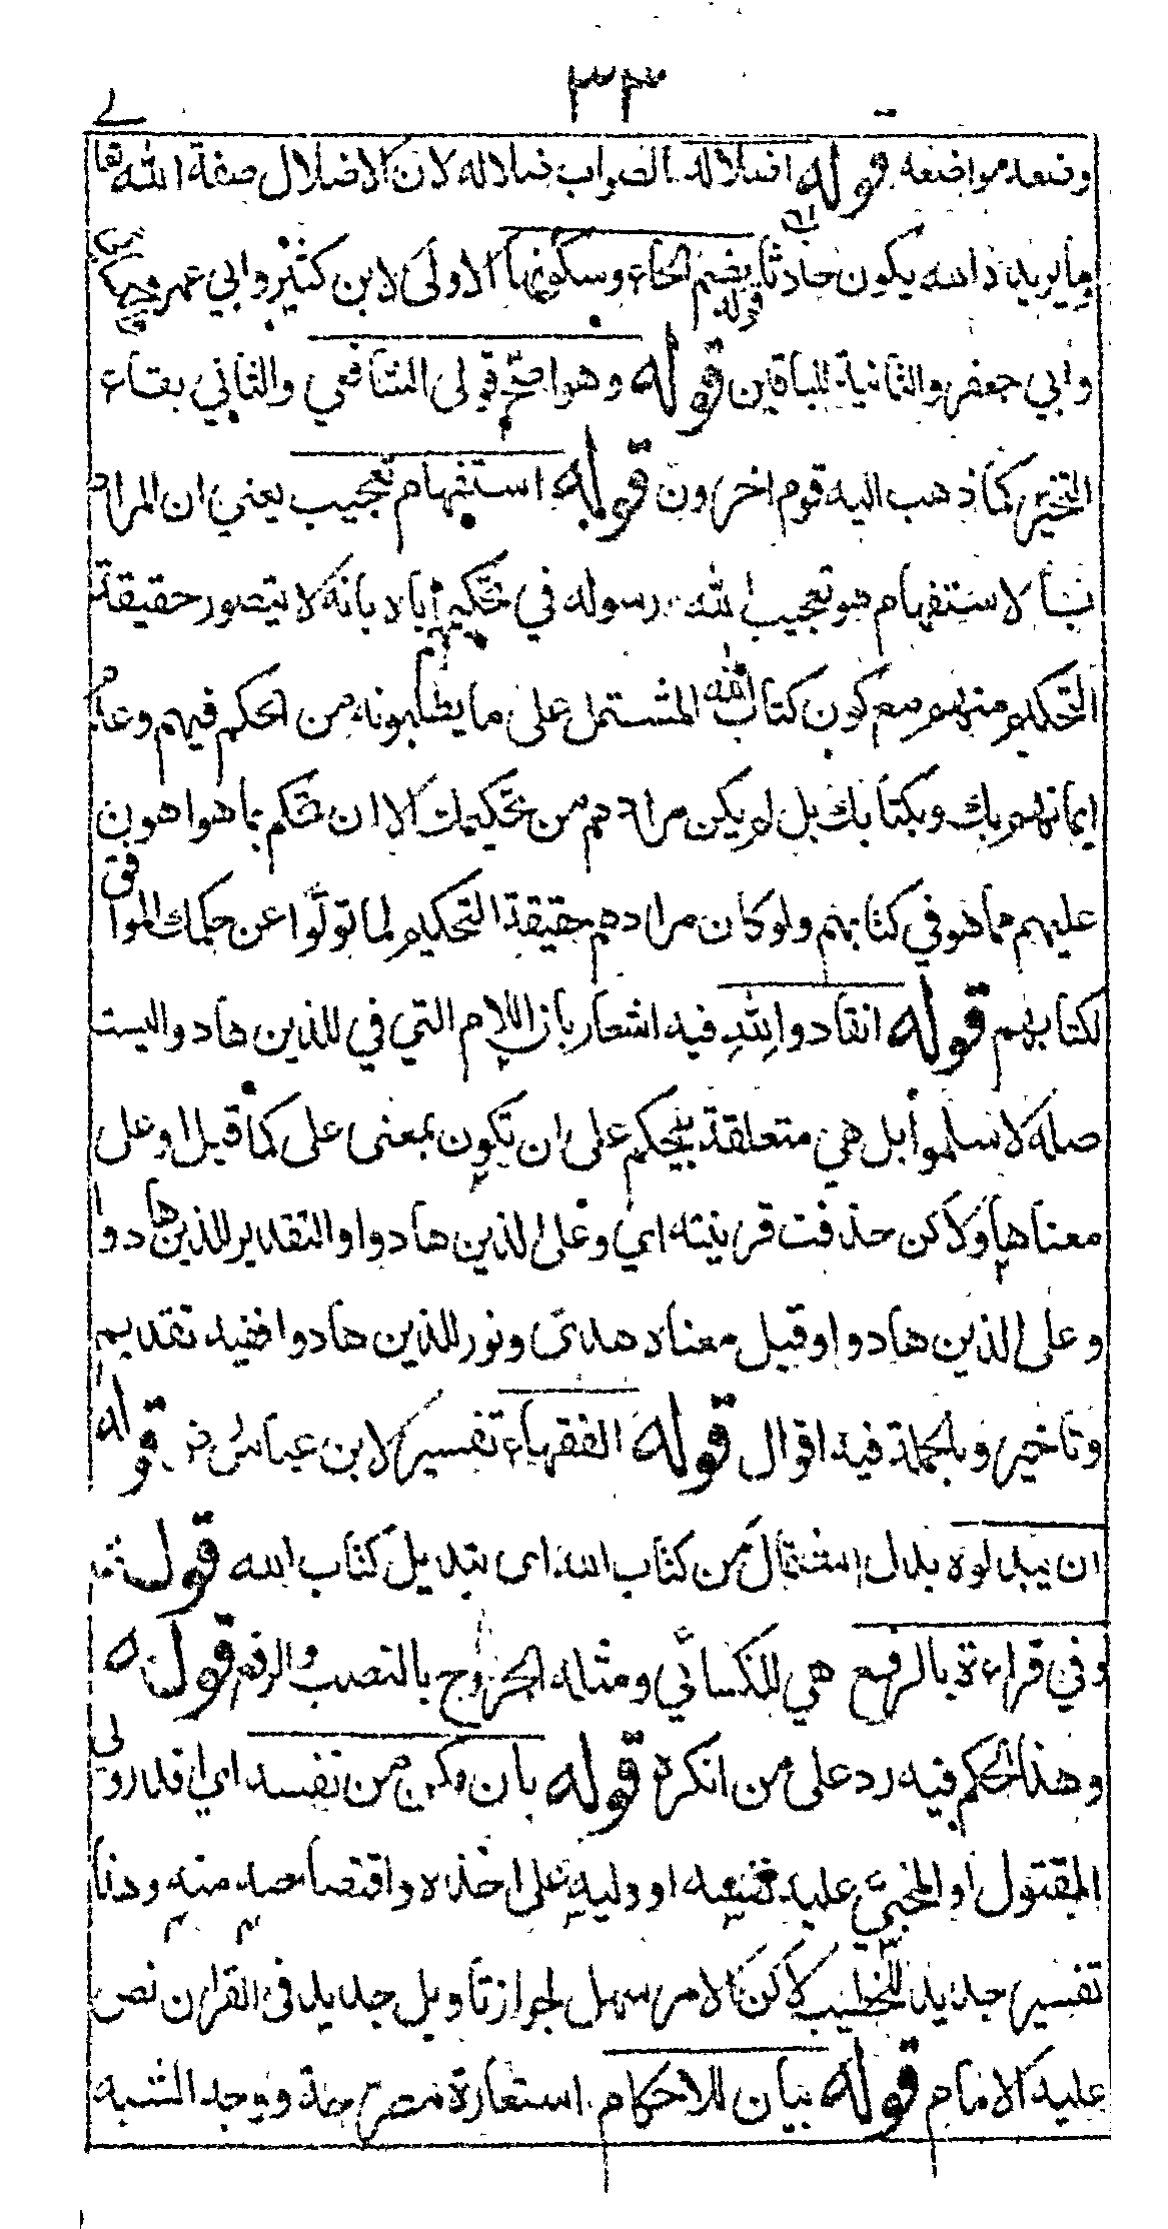 ٣٣
وضعه مواضعه قوله اضلاله الصواب ضلاله لان الاضلال صفة الله تعا
وما يريده الله يكون حادثا بضم الحاء وسكونها الاولى لابن كثير وابي عمرو
وابي جعفر والثانية للباقين قوله وهو اصح قولى الشافعي والثاني بقاء
التخيير كما ذهب اليه قوم اخرون قوله استفهام تعجيب يعني ان المراد
بالاستفهام هو تعجيب الله رسوله في تحكيمهم اياه بانه لا يتصور حقيقة
التحكيم منهم مع كون كتاب الله المشتمل على ما يطلبونه من الحكم فيهم وعدم
ايمانهم بك وبكتابك بل لم يكن مرادهم من تحكيمك الا ان تحكم بما هو اهون
عليهم مما هو في كتابهم ولو كان مرادهم حقيقة التحكيم لما تولوا عن حكمك الموافق
لكتابهم قوله انقادوا لله فيه اشعار بان اللام التي في للذين هادوا ليست
صلة لاسلموا بل هي متعلقة بيحكم على ان تكون بمعنى على كما قيل او على
معناها ولاكن حذفت قرينته اي وعلى الذين هادوا او التقدير للذين هادوا
وعلى الذين هادوا وقيل معناه هدى ونور للذين هادوا ففيه تقديم
وتاخير وبالجملة فيه اقوال قوله الفقهاء تفسير لابن عباس رض قوله
ان يبدلوه بدل اشتمال من كتاب الله اى تبديل كتاب الله قوله
وفي قراءة بالرفع هي للكسائي ومثله الجروح بالنصب والرفع قوله
وهذا الحكم فيه رد على من انكره قوله بان مكن من نفسه اي اقدر ولي
المقتول او المجني عليه نفسه او وليه على اخذه واقتصاصه منه وهذا
تفسير جديد للخطيب لاكن الامر سهل لجواز تأويل جديد فى القران نص
عليه الامام قوله بيان للاحكام استعارة مصرحة ووجه الشبه